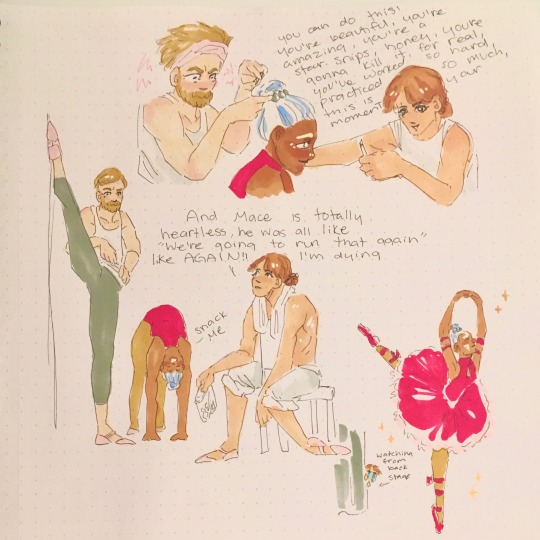 you can do this!
you're beautiful, you're
amazing, you're a
star. Snips, honey, you're
gonna kill it, for real,
you've worked so hard,
practiced so much,
this is your
moment
And Mace is totally
heartless, he was all like
"We're going to run that again"
like AGAIN!! I'm dying
snack
me
watching
from
back
stage